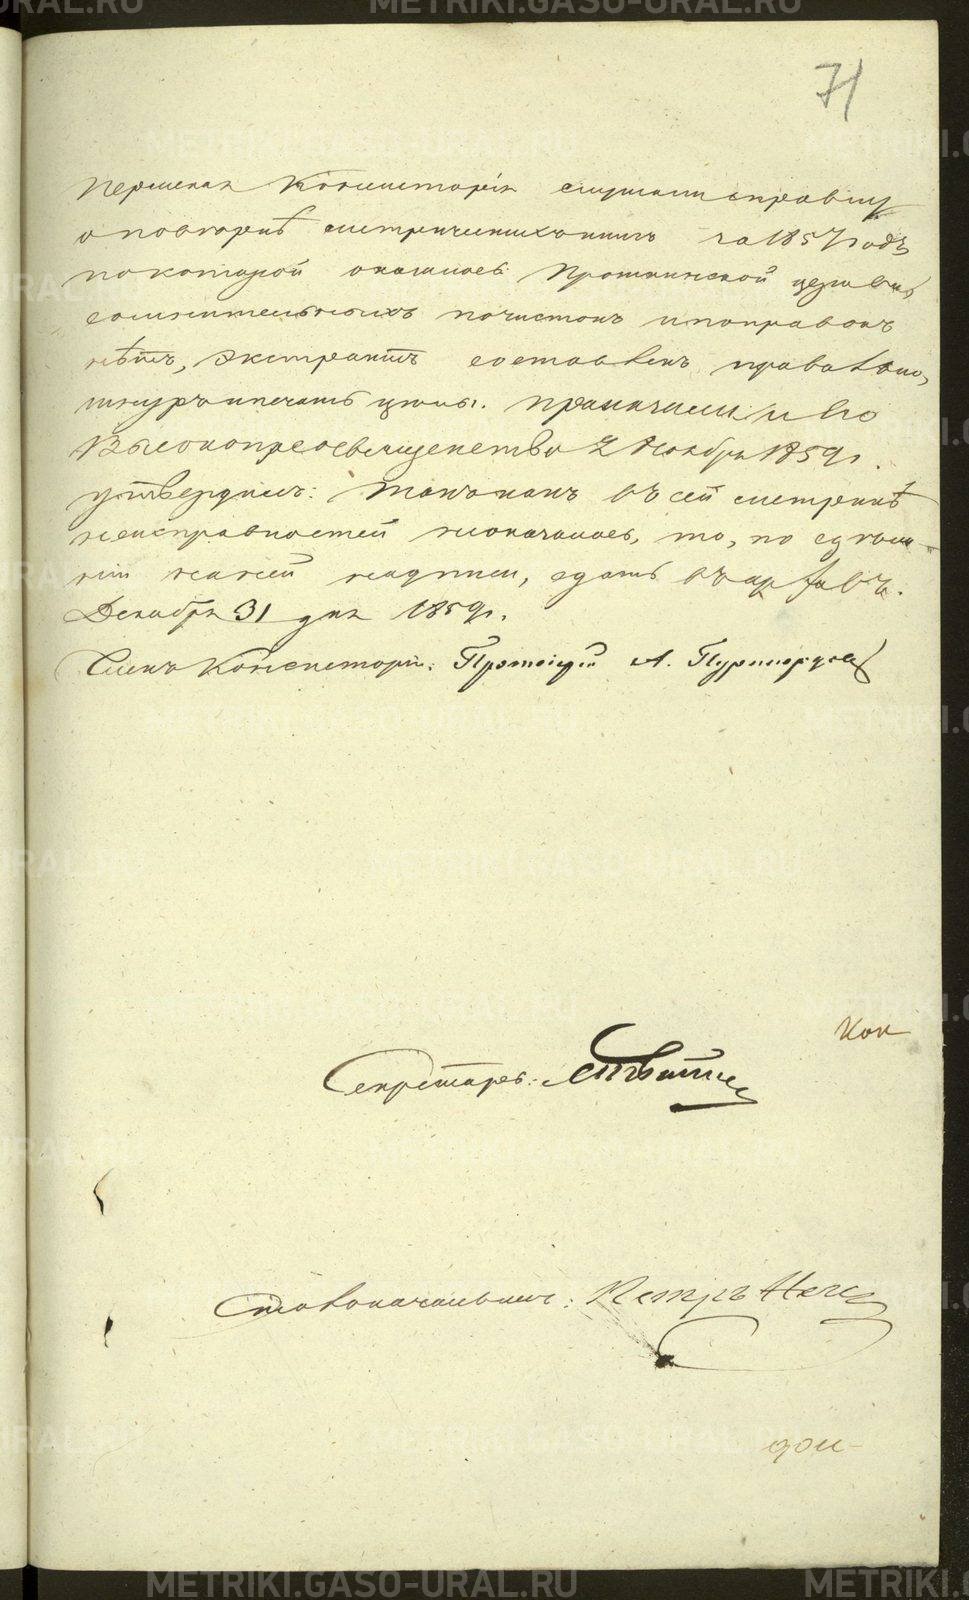 71
Пермская Консисторія слушали справку
о повѣркѣ метрическихъ книгъ за 1857 годъ
по которой оказалось Проткинской церкви
сомнительныхъ почистокъ и поправокъ
нѣтъ, экстрактъ составленъ правильно,
шнуръ и печать цѣлы. Приказали и Его
Высокопреосвященство 2 Ноября 1859 г.
утвердилъ: Такъ какъ въ сей метрикѣ
неисправностей неоказалось, то, по сдѣла-
ніи на ней надписи, сдать въ архивъ.
Декабря 31 дня 1859 г.
Членъ Консисторіи: Протоіерей А.
Кон
Секретарь:
Столоначальникъ: Петръ
METRIKI.GASO-URAL.RU